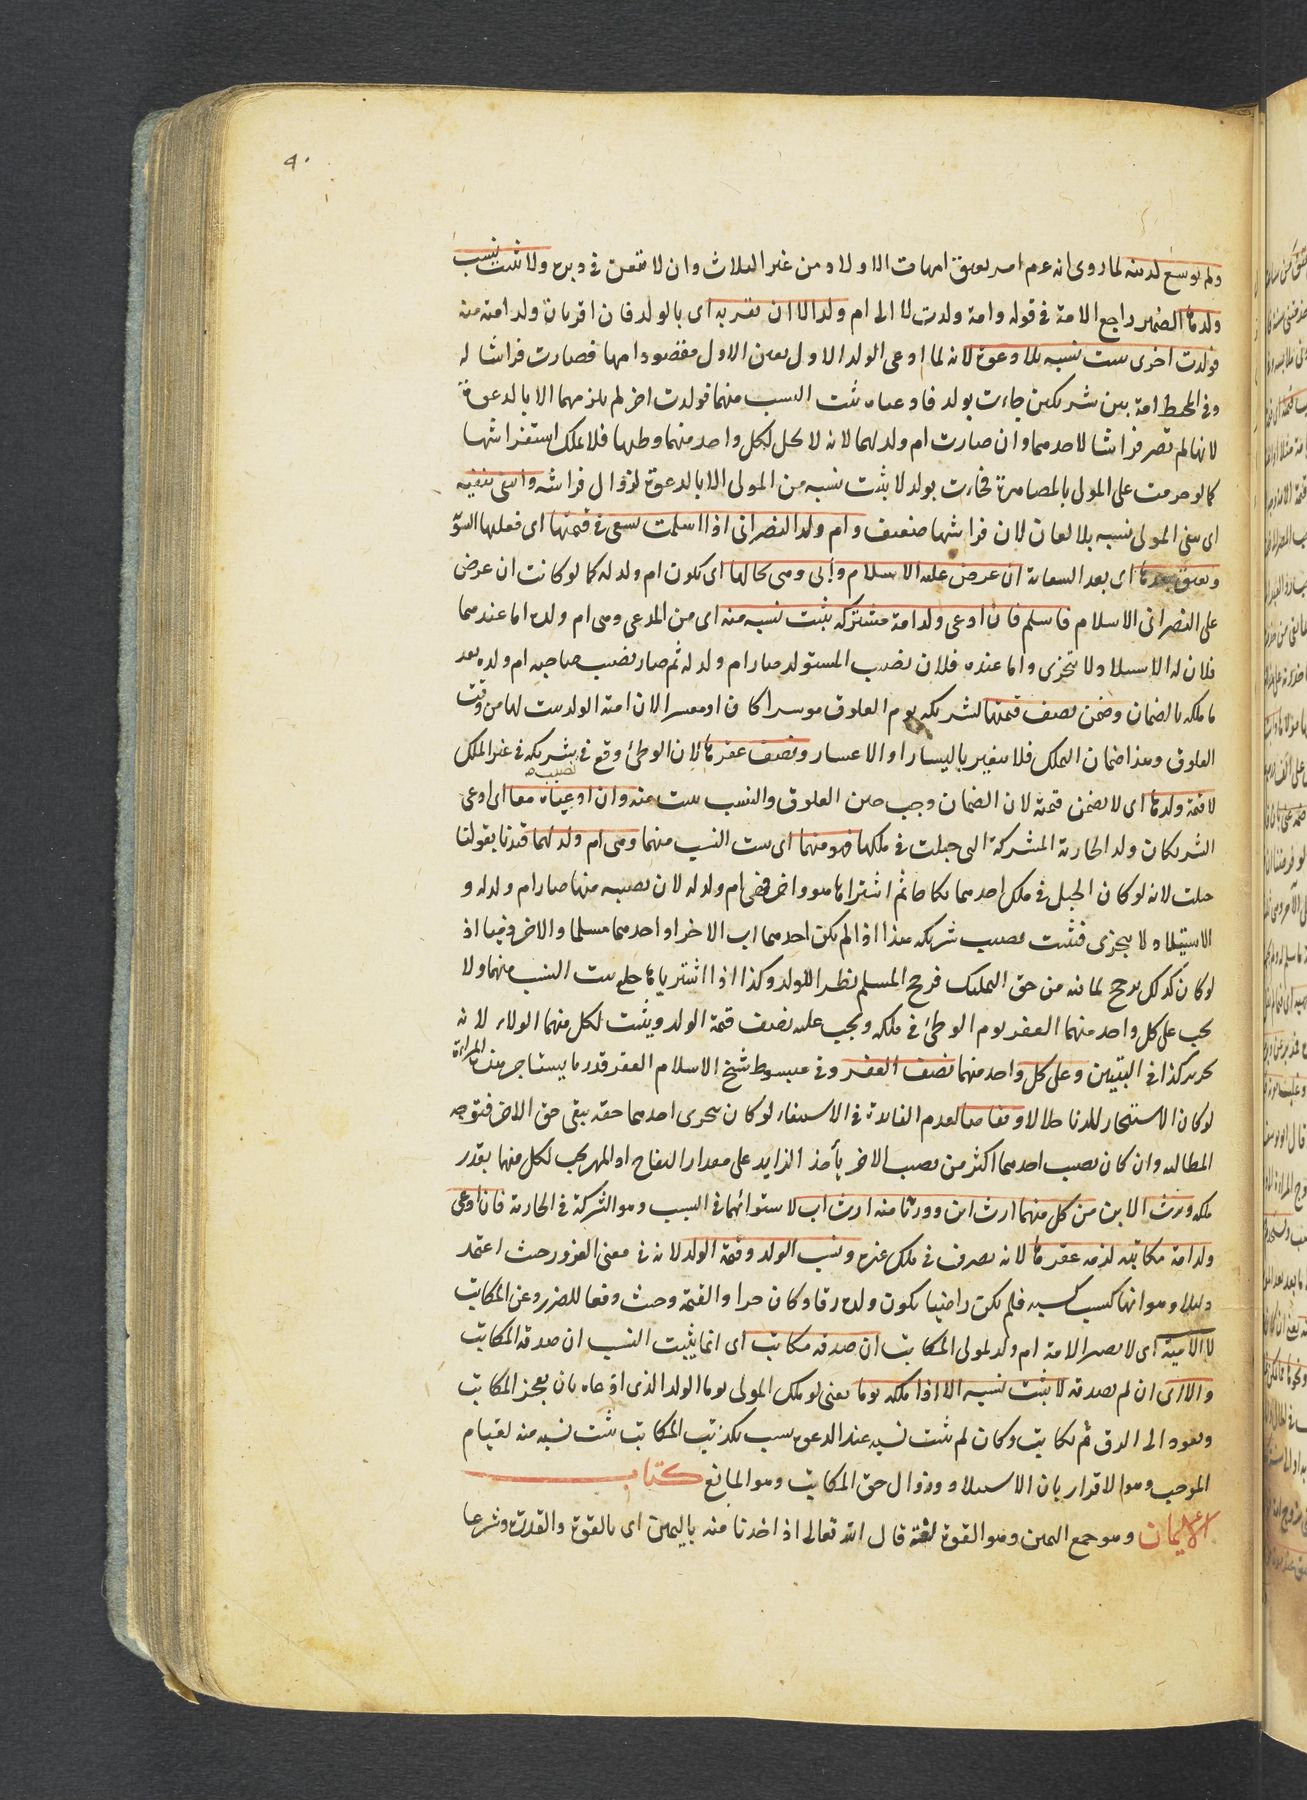 ٩٠
ولم يوسع لدينه لما روى انه عم امر بعتق امهات الاولاد من غير الثلاث وان لا تبعن في دين ولا ثبت نسب
ولدها الضمير راجع الامة في قوله وامة ولدت لا الى ام ولد الا ان تقر به اى بالولد فان اقر بان ولد امته منه
فولدت اخرى ثبت نسبه بلا دعوة لانه لما ادعى الولد الاول تعين الاول مقصودا منها فصارت فراشا له
وفي المحيط امة بين شريكين جاءت بولد فادعياه ثبت النسب منهما فولدت اخر لم يلزمهما الا بالدعوة
لانها لم تصر فراشا لاحدهما وان صارت ام ولد لهما لانه لا يحل لكل واحد منهما وطيها فلا يملك استفراشها
كما لو حرمت على المولى بالمصاهرة فجاءت بولد لا يثبت نسبه من المولى الا بالدعوة لزوال فراشه وانتفى بنفيه
اى بنفى المولى نسبه بلا لعان لان فراشها ضعيف وام ولد النصرانى اذا اسلمت تسعى في قيمتها اى فعليها السعى
وتعتق بعدها اى بعد السعاية ان عرض عليه الاسلام وابى وهى كالها اى تكون ام ولد له كما لو كانت ان عرض
على النصرانى الاسلام فاسلم فان ادعى ولد امة مشتركة يثبت نسبه منه اى من المدعى وهى ام ولده اما عندهما
فلان له الاستيلاد لا يتجزى واما عنده فلان نصيب المستولد صار ام ولد له ثم صار نصيب صاحبه ام ولده بعد
ما ملكه بالضمان وضمن نصف قيمتها لشريكه يوم العلوق موسرا كان او معسرا لان امية الولد ثبت لها من وقت
العلوق وهذا ضمان التملك فلا يتغير باليسار او الاعسار ونصف عقرها لان الوطئ وقع في نصيب شريكه في غير الملك
لا قيمة ولدها اى لا يضمن قيمته لان الضمان وجب حين العلوق والنسب ثبت عنده وان ادعياه معا اى ادعى
الشريكان ولد الجارية المشتركة التى حبلت في ملكهما فهو منهما اى ثبت النسب منهما وهى ام ولد لهما قيدنا بقولنا
حبلت لانه لو كان الحبل في ملك احدهما نكاحا ثم اشتراها هو واخر فهى ام ولد له لان نصيبه منها صار ام ولد له و
الاستيلاد لا يتجزى فثبت نصيب شريكه هذا اذا لم يكن احدهما اب الاخر او احدهما مسلما والاخر ذميا اذ
لو كان كذلك يرجح لما فيه من حق التمليك فرجح المسلم نظرا للولد وكذا اذا اشترياها حبلى ثبت النسب منهما ولا
يجب على كل واحد منهما العقر يوم الوطئ في ملكه ويجب عليه نصف قيمة الولد ويثبت لكل منهما الولاء لانه
تحرير كذا في التبيين وعلى كل واحد منهما نصف العقر وفي مبسوط شيخ الاسلام العقر قدر ما يستاجر هذه المراة
لو كان الاستئجار للزنا حلالا وتقاصا لعدم الفايدة في الاستيفاء لو كان يتحرى احدهما حقه يبقى حق الاخر فيتوجه
المطالبة وان كان نصيب احدهما اكثر من نصيب الاخر يأخذ الزايد على مقدار النكاح او المهر يجب لكل منهما بقدر
ملكه ويرث الابن من كل منهما ارث ابن وورثا منه ارث اب لاستوائهما في السبب وهو الشركة في الجارية فان ادعى
ولد امة مكاتبه لزمه عقرها لانه تصرف في ملك غيره ونسب الولد وقيمة الولد لانه في معنى المغرور حيث اعتمد
دليلا وهو انها كسب كسبه فلم يكن راضيا بكون ولده رقا وكان حرا والقيمة وحيث دفعا للضرر وعن المكاتب
لا الامية اى لا تصير الامة ام ولد لمولى المكاتب ان صدقه مكاتب اى انما يثبت النسب ان صدقه المكاتب
والا اى ان لم يصدقه لا يثبت نسبه الا اذا ملكه يوما يعنى لو ملك المولى يوما الولد الذى ادعاه بان يعجز المكاتب
ويعود الى الرق ثم يكاتب وكان لم يثبت نسبه عند الدعوى بسبب تكذيب المكاتب ثبت نسبه منه لقيام
الموجب وهو الاقرار بان الاستيلاد وزوال حق المكاتب وهو المانع كتاب
الايمان وهو جمع اليمين وهو القوة لغة قال الله تعالى اذ اخذنا منه باليمين اى بالقوة والقدرة وشرعا